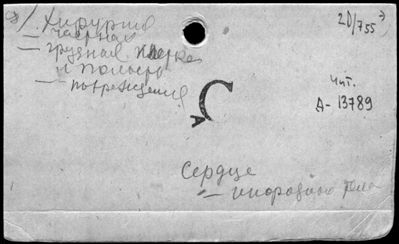 3) Хирургия
— частная
— грудная клетка
и полость
— повреждения
20/755 3)
Чит.
А-13789
С
А
Сердце
— инородного тела